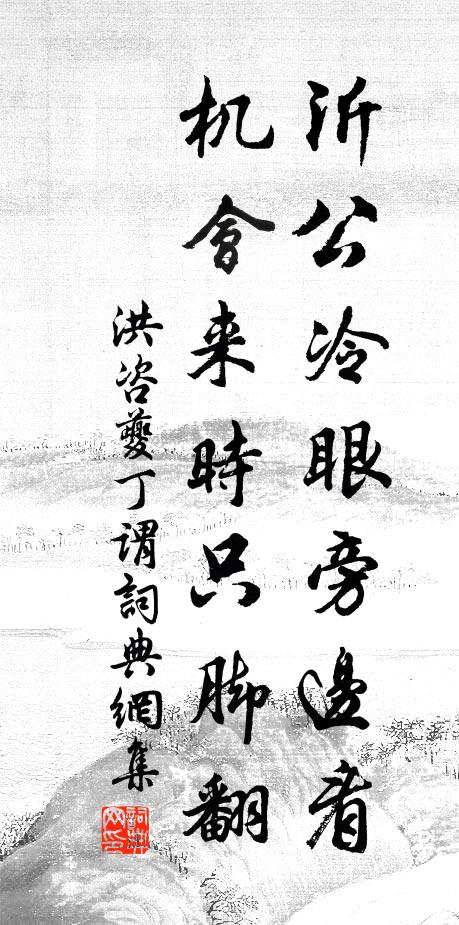 沂公冷眼旁邊看
机會来時只脚翻
洪咨夔丁謂詞典網集